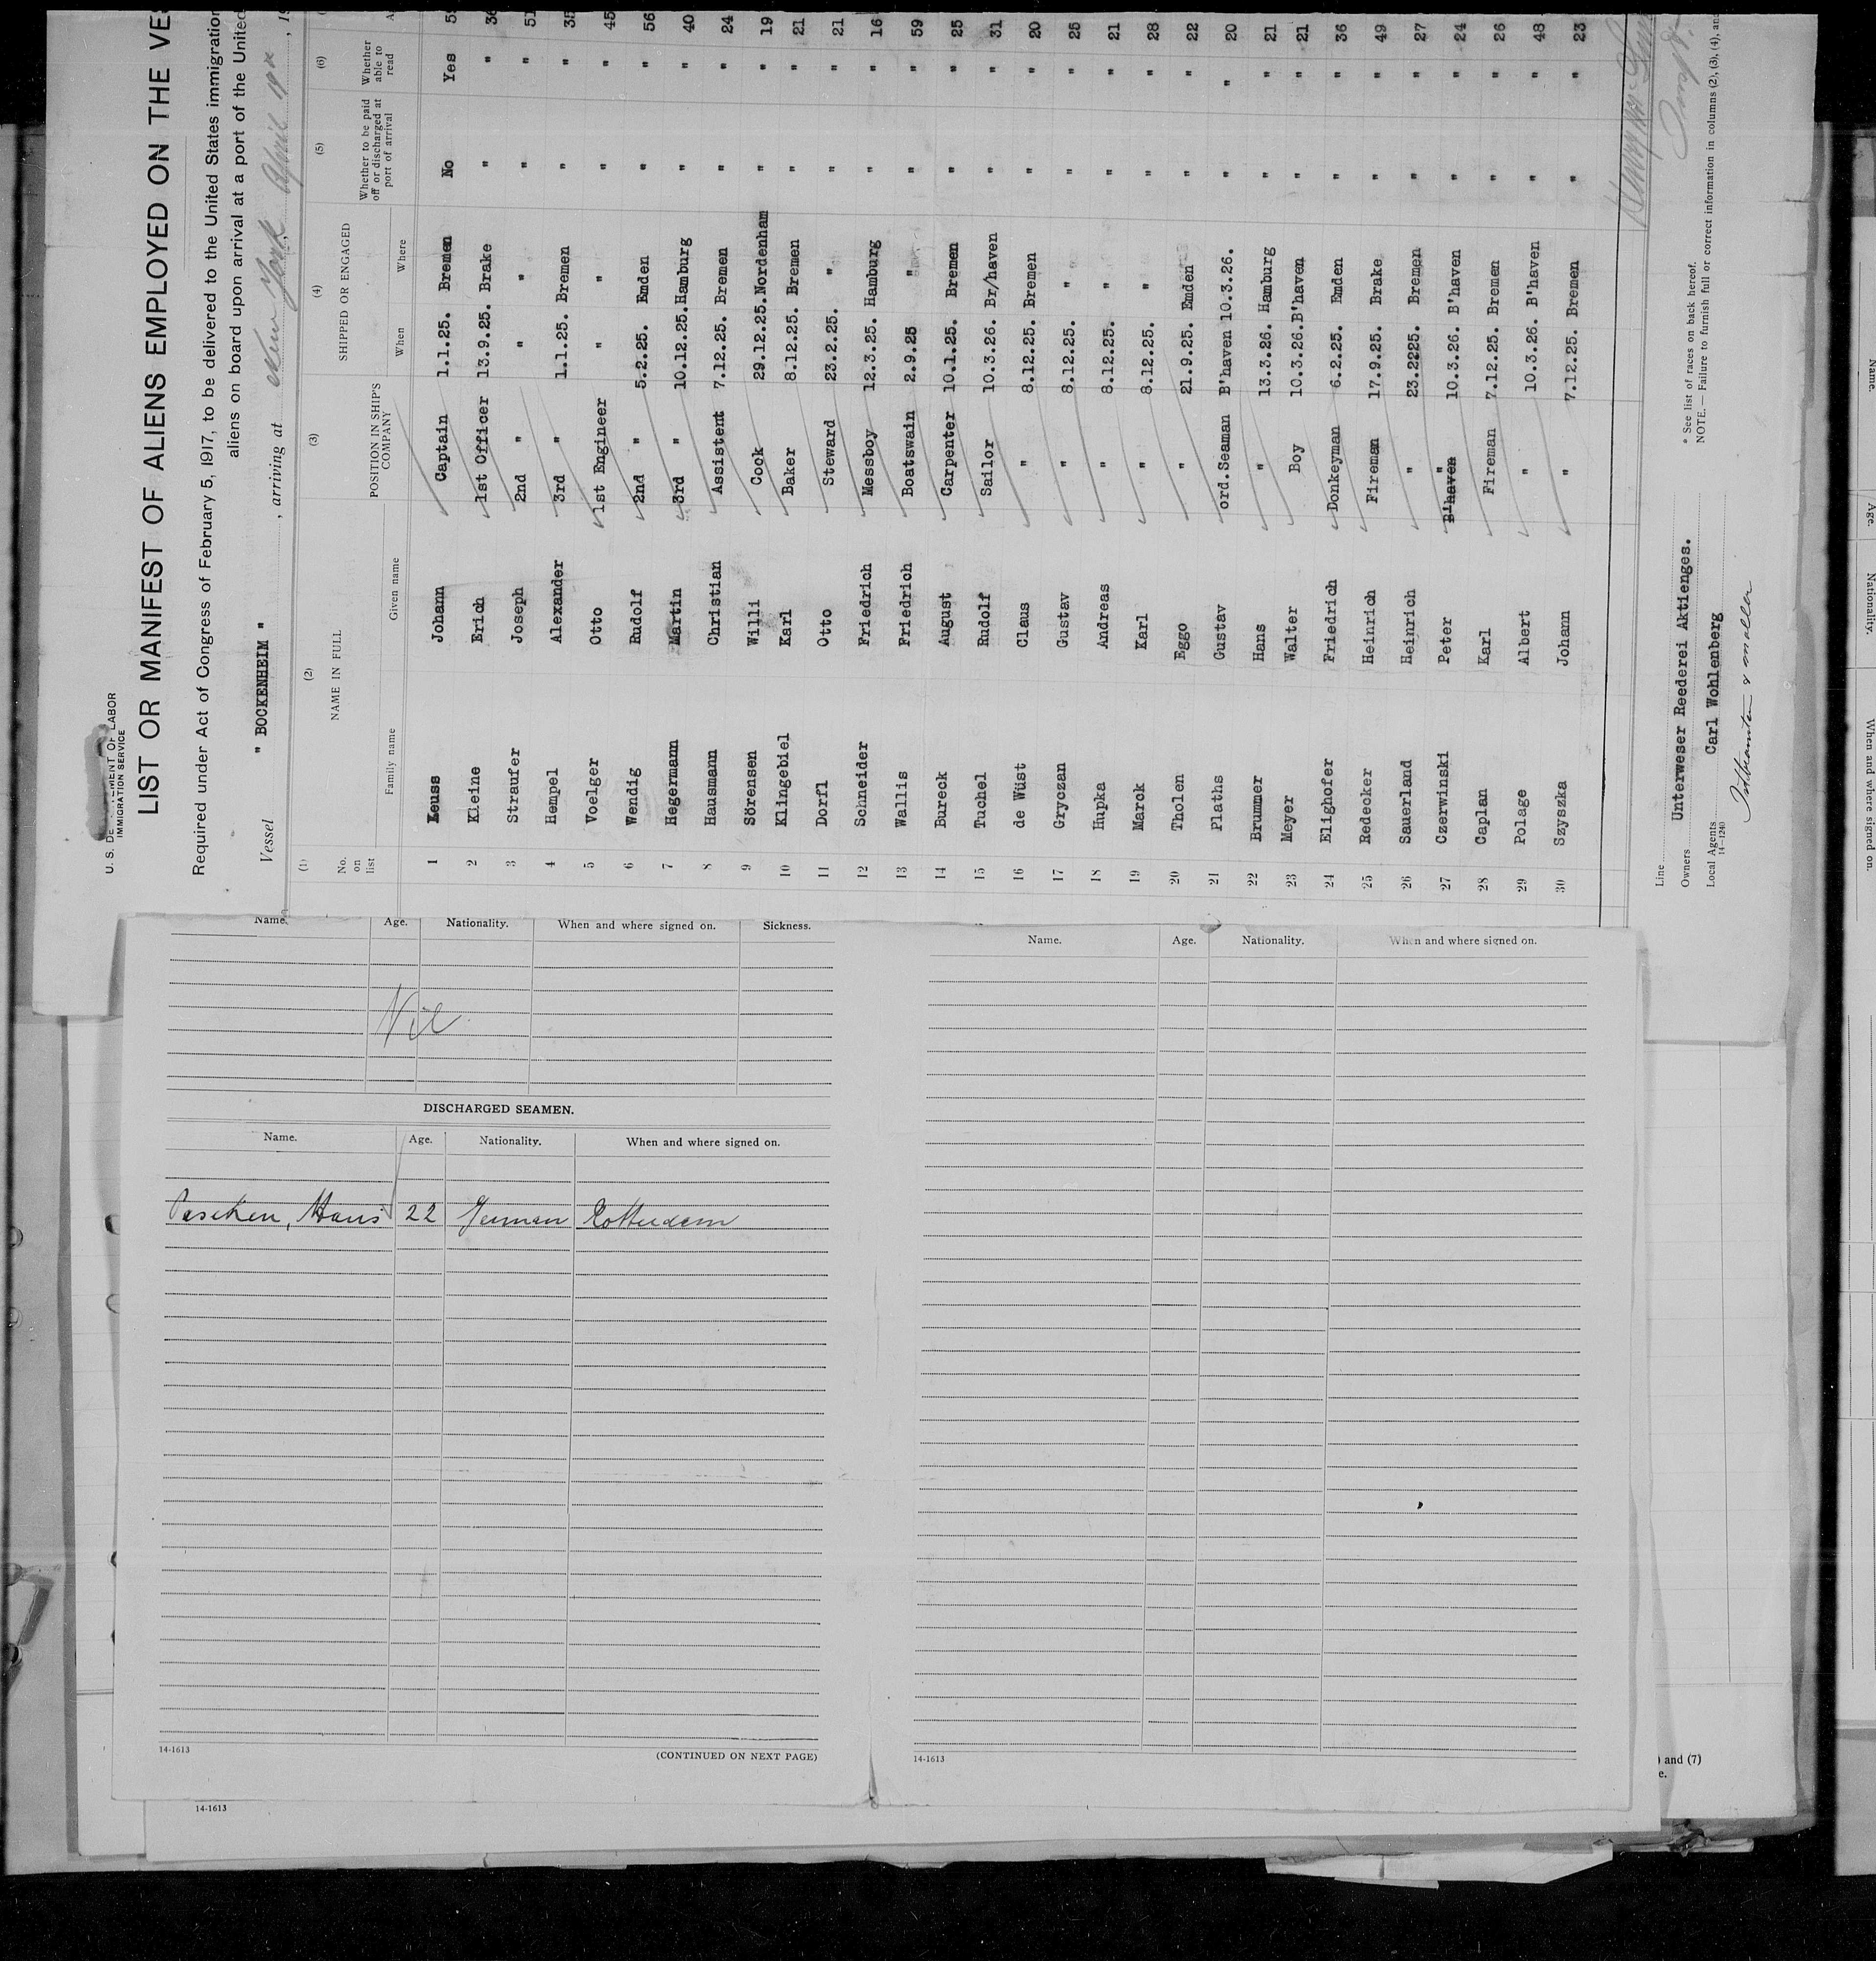 U. S. DEPARTMENT OF LABOR
IMMIGRATION SERVICE
LIST OR MANIFEST OF ALIENS EMPLOYED ON THE VES
Required under Act of Congress of February 5, 1917, to be delivered to the United States immigration
aliens on board upon arrival at a port of the United
Vessel " BOCKENHEIM " , arriving at New York April , 19
(1) (2) (3) (4) (5) (6)
No. on list NAME IN FULL POSITION IN SHIP'S COMPANY SHIPPED OR ENGAGED Whether to be paid off or discharged at port of arrival Whether able to read A
Family name Given name When Where
1 Leuss Johann Captain 1.1.25. Bremen No Yes 5
2 Kleine Erich 1st Officer 13.9.25. Brake " " 36
3 Straufer Joseph 2nd " " " " " 51
4 Hempel Alexander 3rd " 1.1.25. Bremen " " 35
5 Voelger Otto 1st Engineer " " " " 45
6 Wendig Rudolf 2nd " 5.2.25. Emden " " 56
7 Hegermann Martin 3rd " 10.12.25. Hamburg " " 40
8 Hausmann Christian Assistent 7.12.25. Bremen " " 24
9 Sörensen Willi Cock 29.12.25. Nordenham " " 19
10 Klingebiel Karl Baker 8.12.25. Bremen " " 21
11 Dorfl Otto Steward 23.2.25. " " " 21
12 Schneider Friedrich Messboy 12.3.25. Hamburg " " 16
13 Wallis Friedrich Boatswain 2.9.25 " " " 59
14 Bureck August Carpenter 10.1.25. Bremen " " 25
15 Tuchel Rudolf Sailor 10.3.26. Br/haven " " 31
16 de Wüst Claus " 8.12.25. Bremen " " 20
17 Gryczan Gustav " 8.12.25. " " " 25
18 Hupka Andreas " 8.12.25. " " " 21
19 Marck Karl " 8.12.25. " " " 28
20 Tholen Eggo " 21.9.25. Emden " " 22
21 Plaths Gustav ord.Seaman B'haven 10.3.26. " 20
22 Brummer Hans " 13.3.26. Hamburg " " 21
23 Meyer Walter Boy 10.3.26. B'haven " " 21
24 Elighofer Friedrich Donkeyman 6.2.25. Emden " " 36
25 Redecker Heinrich Fireman 17.9.25. Brake " " 49
26 Sauerland Heinrich " 23.2225. Bremen " " 27
27 Czerwinski Peter B'haven " 10.3.26. B'haven " " 24
28 Caplan Karl Fireman 7.12.25. Bremen " " 26
29 Polage Albert " 10.3.26. B'haven " " 48
30 Szyszka Johann " 7.12.25. Bremen " " 23
Line
Owners Unterweser Reederei Aktienges.
Local Agents Carl Wohlenberg
14-1240
* See list of races on back hereof.
NOTE.— Failure to furnish full or correct information in columns (2), (3), (4), and
Name. Age. Nationality. When and where signed on. Sickness.
Nil
DISCHARGED SEAMEN.
Name. Age. Nationality. When and where signed on.
Paschen, Hans 22 German Rotterdam
14-1613
(CONTINUED ON NEXT PAGE)
Name. Age. Nationality. When and where signed on.
14-1613
14-1613
) and (7)
e.
Name. Age. Nationality. When and where signed on.